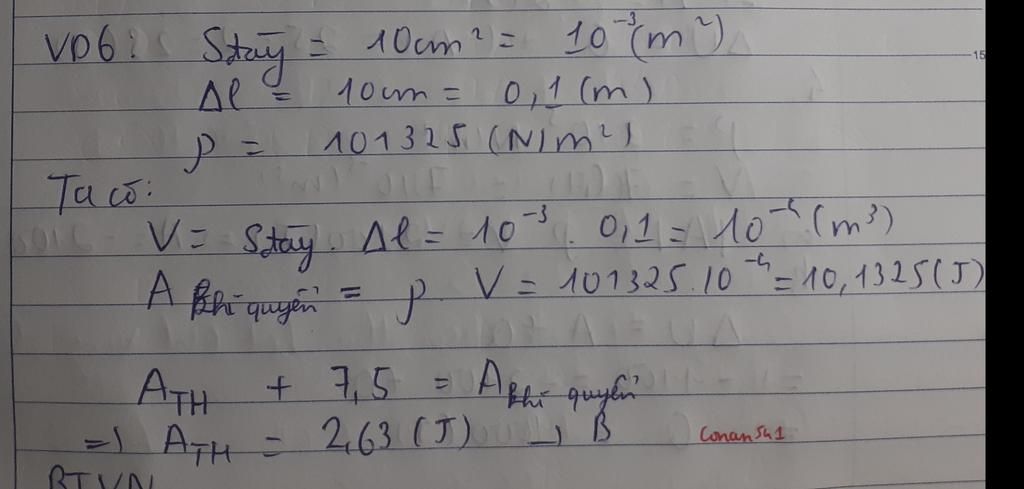 VD6: Stãy = 10cm² = 10⁻³(m²)
15
Δl = 10cm = 0,1 (m)
p = 101325 (N/m²)
Ta có:
V = Stãy . Δl = 10⁻³ . 0,1 = 10⁻⁴ (m³)
A khí quyển = p . V = 101325.10⁻⁴ = 10,1325(J)
A_TH + 7,5 = A khí quyển
=> A_TH = 2,63 (J) → B
Conan541
BTVN